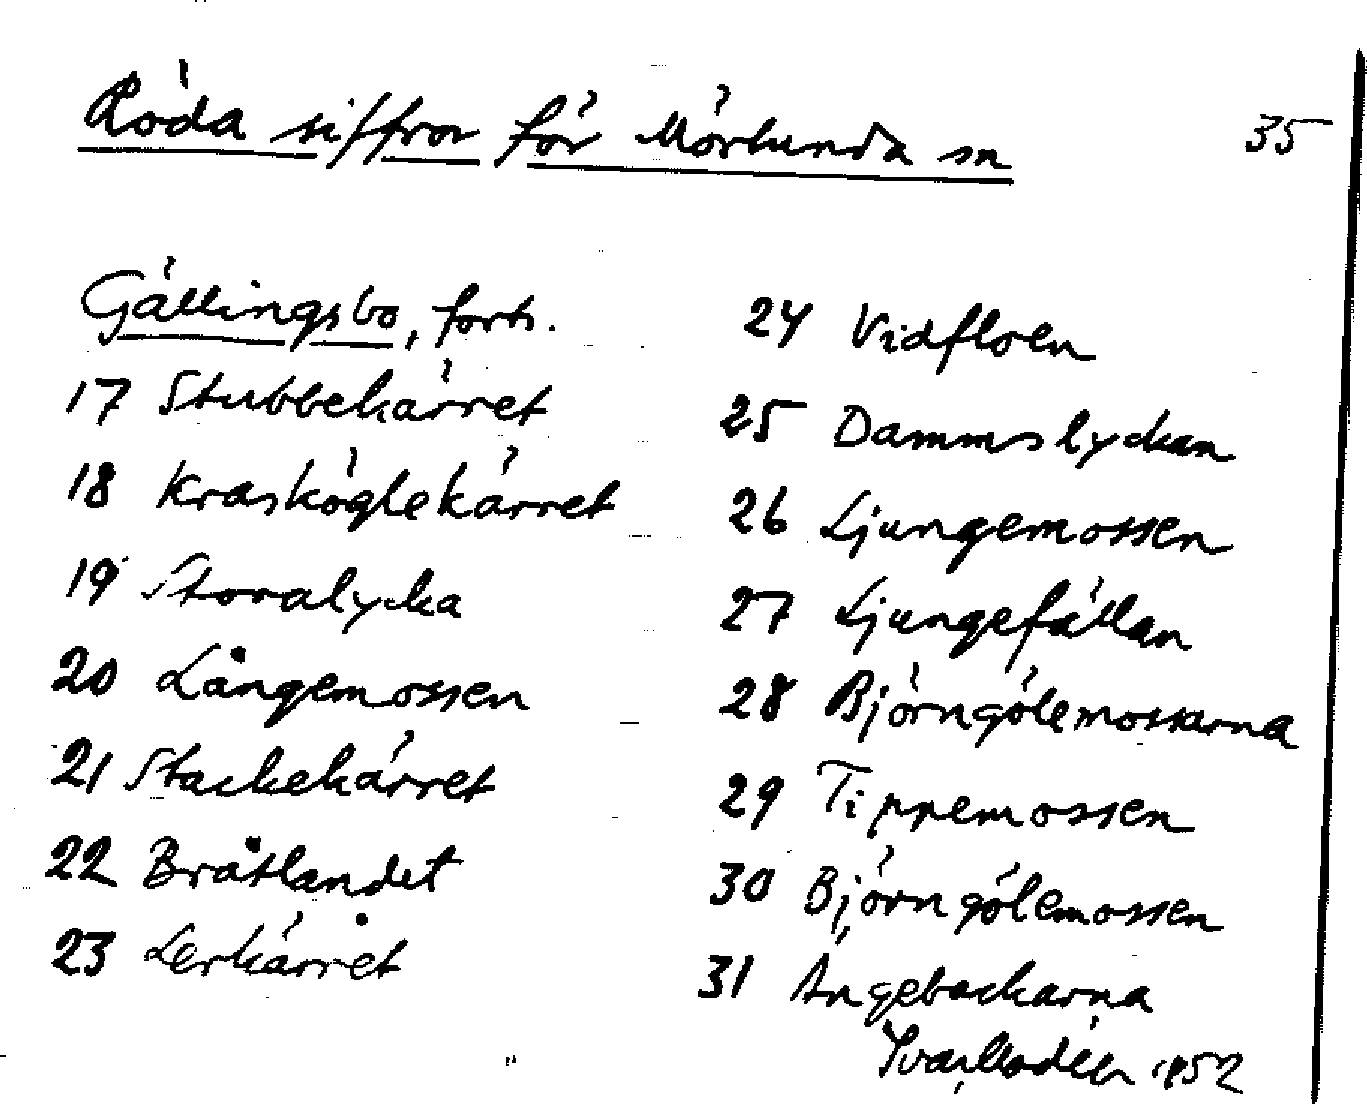 Röda siffror för Mörlunda sn
35
Gällingsbo, forts.
17 Stubbekärret
18 Krasköglekärret
19 Storalycka
20 Långemossen
21 Stackekärret
22 Bråtlandet
23 Lerkärret
24 Vidfloen
25 Dammslyckan
26 Ljungemossen
27 Ljungefällan
28 Björngölemossarna
29 Tippemossen
30 Björngölemossen
31 Ängebackarna
Ivar Modéer 1952